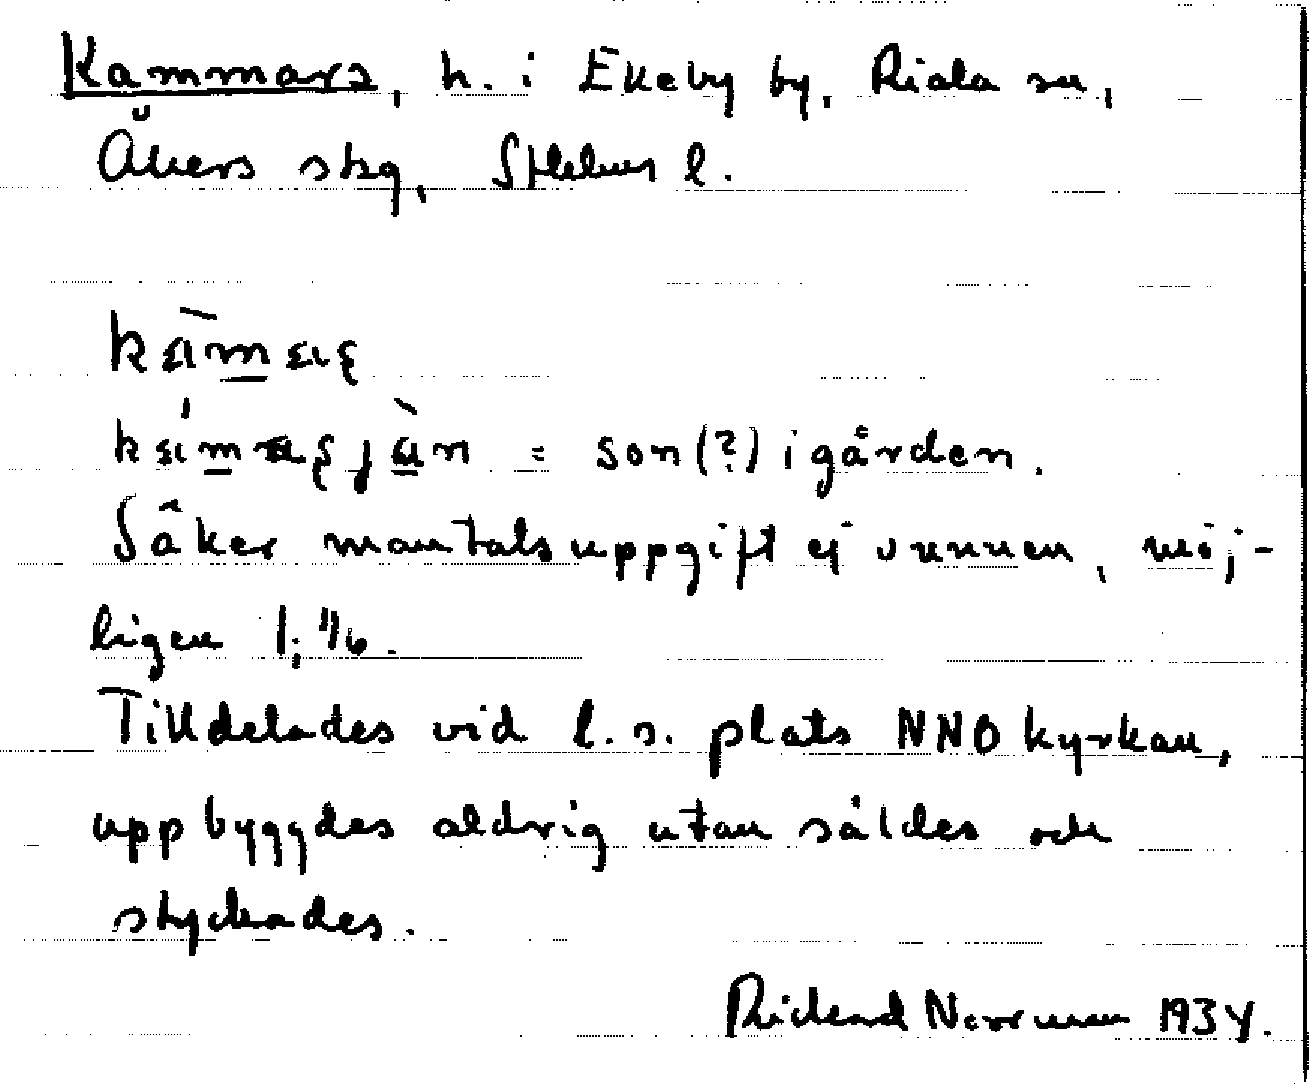 Kammars, h. i Ekeby by, Riala sn,
Åkers skg, Sthlms l.
kàmaʂ
kámaʂjàn = son (?) i gården.
Säker mantalsuppgift ej vunnen, möj-
ligen 1; 1/6.
Tilldelades vid l. s. plats NNO kyrkan,
uppbyggdes aldrig utan såldes och
styckades.
Rickard Norrman 1934.